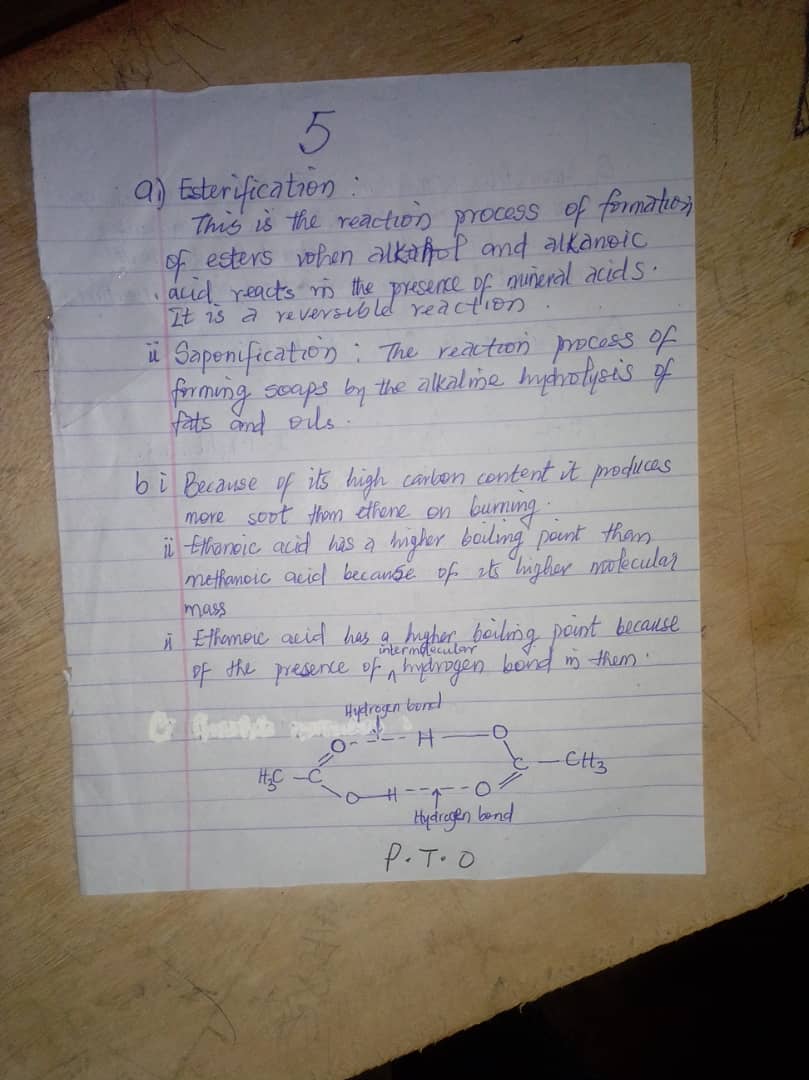 5
a i) Esterification :
This is the reaction process of formation
of esters when alkanol and alkanoic
acid reacts in the presence of mineral acids.
It is a reversible reaction.
ii Saponification : The reaction process of
forming soaps by the alkaline hydrolysis of
fats and oils.
b i Because of its high carbon content it produces
more soot than ethene on burning.
ii Ethanoic acid has a higher boiling point than
methanoic acid because of its higher molecular
mass
ii Ethanoic acid has a higher boiling point because
of the presence of intermolecular hydrogen bond in them.
Hydrogen bond
O H O
H3C C C CH3
O H O
Hydrogen bond
P.T.O